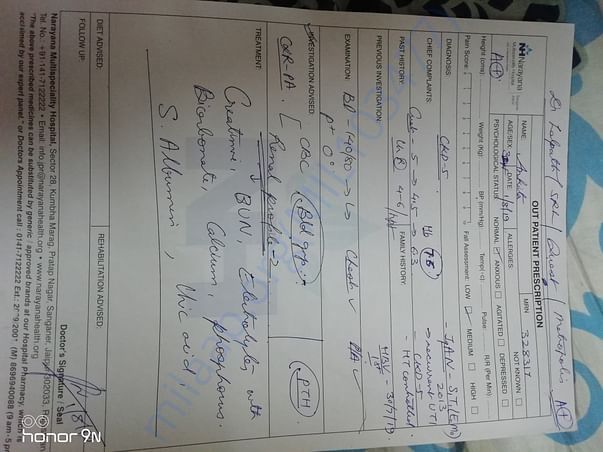 Dr Lalpath / SRL / Quest / Metropolis A⊕
NH Narayana
Multispeciality Hospital
OUT PATIENT PRESCRIPTION
NAME: Ankita MRN 328317
AGE/SEX: DATE: 1/8/19 ALLERGIES: NOT KNOWN
PSYCHOLOGICAL STATUS: NORMAL ANXIOUS AGITATED DEPRESSED
A⊕
Height (cms) Weight (Kg): BP (mm/hg) Temp(·c) Pulse: R/R (Per Min)
Pain Score Fall Assessment: LOW MEDIUM HIGH
DIAGNOSIS:
CKD-5. Hb 7.5
CHIEF COMPLAINTS:
Creat - 5 → 4.5 → 6.3
2013
→ recurrent UTI
- CKD-5
- HT controlled
PAST HISTORY: FAMILY HISTORY:
PREVIOUS INVESTIGATION:
HBV - 30/7/19.
EXAMINATION BP - 140/80 Chest ✓ P/A ✓
INVESTIGATION ADVISED:
CXR-PA. CBC Bld grp. PTH
TREATMENT: Renal profile →
Creatinine, BUN, Electrolytes with
Bicarbonate, Calcium, phosphorus.
S. Albumin, Uric acid,
DIET ADVISED: REHABILITATION ADVISED:
FOLLOW UP:
Doctor's Signature / Seal
Narayana Multispeciality Hospital, Sector 28, Kumbha Marag, Pratap Nagar, Sanganer, Jaipur 302033,
Tel. No.: +91-141-7122222 • Email: info.jpr@narayanahealth.org • www.narayanahealth.org
"The above prescribed medicines can be substituted by generic / approved brands at our Hospital Pharmacy, which is
acclaimed by our expert panel." or Doctors Appointment call : 0141-7122222 (M) 8696940088 (9 am - 5 pm
honor 9N